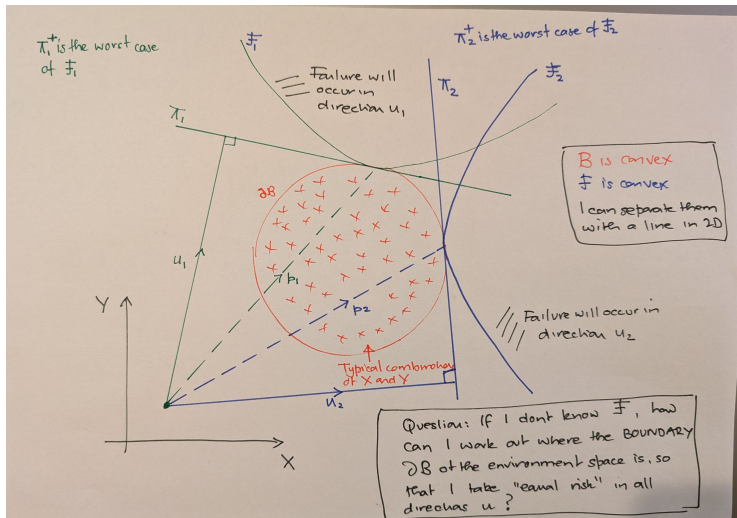 π₁⁺ is the worst case
of F₁
F₁
π₂⁺ is the worst case of F₂
F₂
Failure will
occur in
direction u₁
π₁
π₂
∂B
B is convex
F is convex
I can separate them
with a line in 2D
u₁
p₁
p₂
Y
Failure will occur in
direction u₂
Typical combinations
of X and Y
u₂
X
Question: If I dont know F, how
can I work out where the BOUNDARY
∂B of the environment space is, so
that I take "equal risk" in all
directions u?